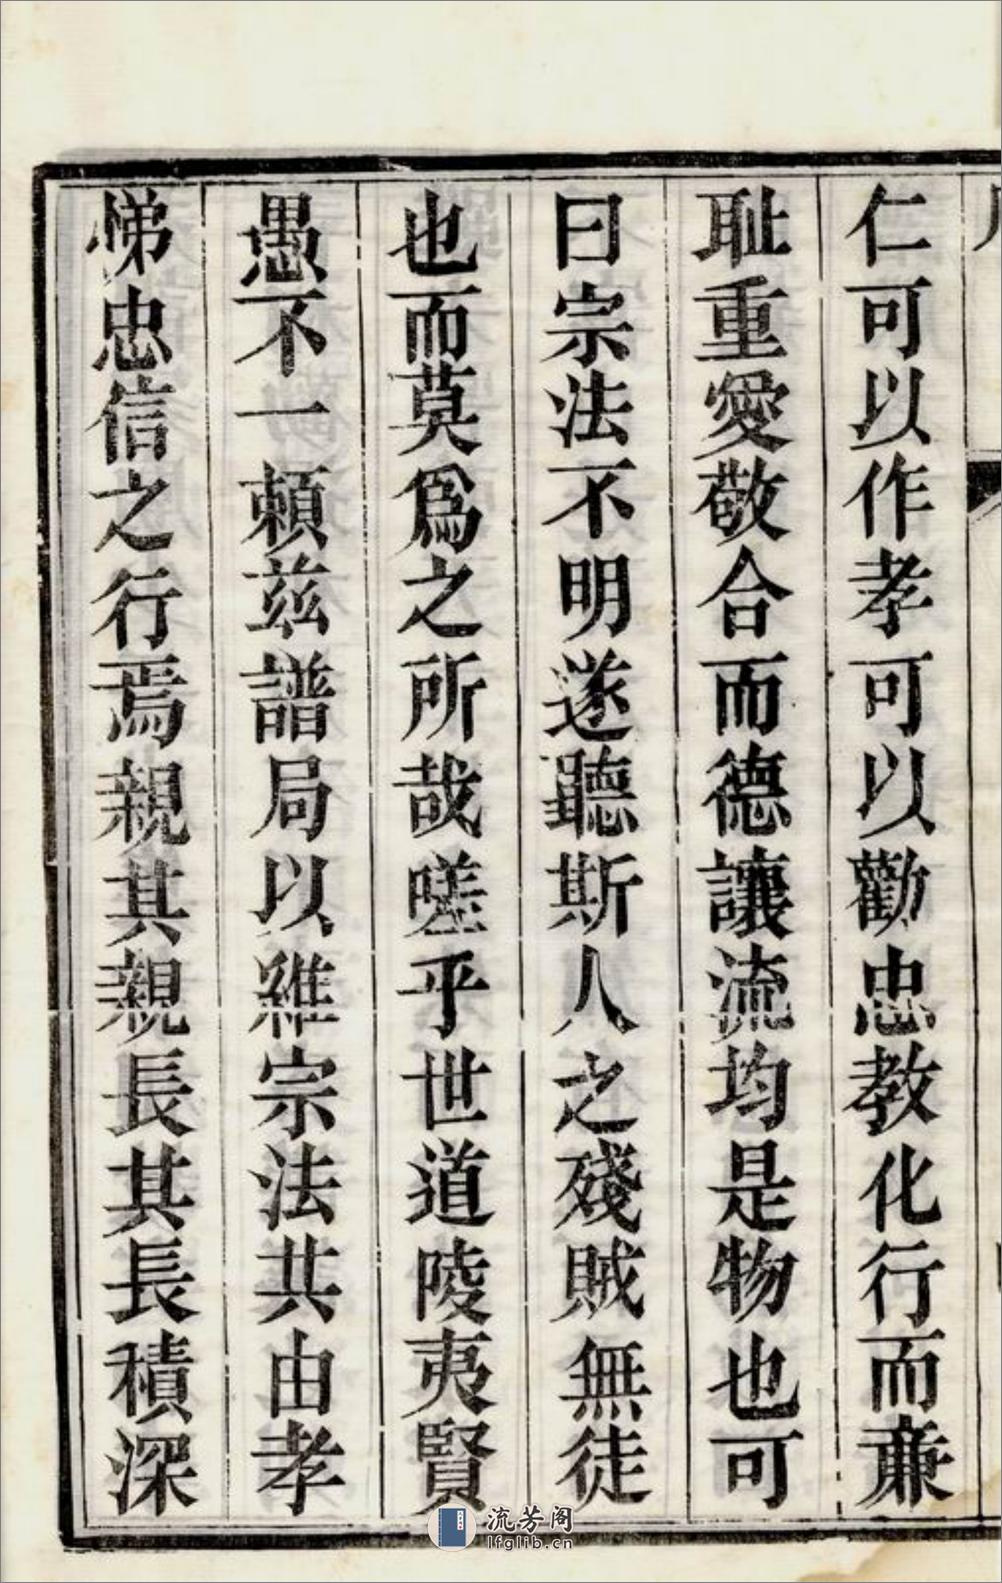 仁可以作孝可以勸忠教化行而廉
耻重愛敬合而德讓流均是物也可
曰宗法不明遂聽斯人之殘賊無徒
也而莫爲之所哉嗟乎世道陵夷賢
愚不一頼兹譜局以維宗法共由孝
悌忠信之行焉親其親長其長積深
流芳阁
lfglib.cn